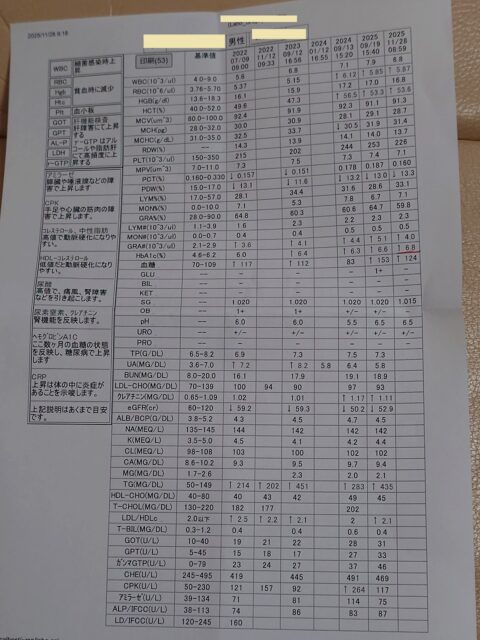 2025/11/28 9:18
男性
印刷(53) 基準値 2022 07/09 09:00 2022 11/12 09:33 2023 09/16 16:56 2024 01/12 16:55 2024 09/13 15:20 2025 09/19 15:40 2025 11/28 08:59
WBC 細菌感染時上昇
RBC
Hgb 貧血時に減少
Htc
Plt 血小板
GOT 肝機能検査
GPT 肝障害にて上昇する
AL-P
LDH γ-GTPはアルコールや脂肪肝にて高頻度に上昇する
γ-GTP
アミラーゼ
膵臓や唾液腺などの障害で上昇します
CPK
手足や心臓の筋肉の障害で上昇します。
コレステロール、中性脂肪
高値で動脈硬化になりやすい。
HDL-コレステロール
低値だと動脈硬化になりやすい。
尿酸
高値で、痛風、腎障害などを引き起こします。
尿素窒素、クレアチニン
腎機能を反映します。
ヘモグロビンA1C
ここ数ヶ月の血糖の状態を反映し、糖尿病で上昇します
CRP
上昇は体の中に炎症があることを示唆します。
上記説明はあくまで目安です。
WBC(10^3/ul) 4.0-9.0 5.8 6.8 7.1 7.9 6.8
RBC(10^6/ul) 3.76-5.70 5.37 5.15 ↑ 6.12 ↑ 5.85 ↑ 5.87
HGB(g/dl) 13.6-18.3 16.1 15.9 17.2 17.0 16.8
HCT(%) 40.0-52.0 49.6 47.3 ↑ 56.5 ↑ 53.3 ↑ 53.6
MCV(um^3) 80.0-100.0 92.4 91.9 92.3 91.1 91.3
MCH(pg) 28.0-32.0 30.0 30.9 28.1 29.1 28.7
MCHC(g/dL) 31.0-35.0 32.5 33.7 ↓ 30.5 31.9 31.4
RDW(%) 14.3 13.9 14.1 14.0 13.7
PLT(10^3/ul) 150-350 215 202 244 253 226
MPV(um^3) 7.0-11.0 7.3 7.5 7.3 7.4 7.1
PCT(%) 0.160-0.330 ↓ 0.157 ↓ 0.151 0.178 0.187 0.160
PDW(%) 15.0-17.0 ↓ 13.1 ↓ 11.6 ↓ 13.2 ↓ 13.0 ↓ 13.3
LYM(%) 17.0-57.0 28.1 34.4 31.6 28.6 33.1
MON(%) 0.0-10.0 7.1 5.3 7.8 6.7 7.1
GRA(%) 28.0-90.0 64.8 60.3 60.6 64.7 59.8
LYM#(10^3/ul) 1.1-3.9 1.6 2.3 2.2 2.3 2.3
MON#(10^3/ul) 0.0-0.7 0.4 0.4 0.5 0.5 0.5
GRA#(10^3/ul) 2.1-2.9 ↑ 3.6 ↑ 4.1 ↑ 4.4 ↑ 5.1 ↑ 4.0
HbA1c(%) 4.6-6.2 6.0 ↑ 6.4 ↑ 6.3 ↑ 6.6 ↑ 6.8
血糖 70-109 ↑ 117 ↑ 112 83 ↑ 153 ↑ 124
GLU -- -- -- -- 1+ --
BIL -- -- -- -- -- --
KET -- -- -- -- -- --
SG -- 1.020 1.020 1.020 1.020 1.015
OB -- 1+ 1+ +/- +/- --
pH -- 6.0 6.0 5.5 6.5
URO -- +/- +/- +/- +/- +/-
PRO -- -- -- -- -- --
TP(G/DL) 6.5-8.2 6.9 7.3 7.5 7.3
UA(MG/DL) 3.6-7.0 ↑ 7.2 ↑ 8.2 5.8 6.4 5.8
BUN(MG/DL) 8.0-20.0 16.1 17.9 19.1 18.9
LDL-CHO(MG/DL) 70-139 100 94 90 97 93
クレアチニン(MG/DL) 0.65-1.09 1.02 1.01 ↑ 1.17 ↑ 1.11
eGFR(cr) 60-120 ↓ 59.2 ↓ 59.3 ↓ 50.2 ↓ 52.9
ALB/BCP(G/DL) 3.8-5.2 4.3 4.5 4.7 4.5
NA(MEQ/L) 135-145 144 142 142 142
K(MEQ/L) 3.5-5.0 4.5 4.1 4.2 4.4
CL(MEQ/L) 98-108 103 100 102 102
CA(MG/DL) 8.6-10.2 9.3 9.5 9.7 9.4
MG(MG/DL) 1.7-2.6 2.3 2.0 2.1
TG(MG/DL) 50-149 ↑ 214 ↑ 202 ↑ 451 ↑ 283 ↑ 435
HDL-CHO(MG/DL) 40-80 40 43 42 49 45
T-CHOL(MG/DL) 130-220 182 177 202
LDL/HDLc 2.0以下 ↑ 2.5 ↑ 2.2 ↑ 2.1 2 ↑ 2.1
T-BIL(MG/DL) 0.3-1.2 0.4 0.4 0.6 0.4
GOT(U/L) 10-40 19 21 22 28 31
GPT(U/L) 5-45 15 18 17 27 33
ガンマGTP(U/L) 0-79 23 24 27 37 46
CHE(U/L) 245-495 419 445 491 469
CPK(U/L) 50-230 121 157 92 ↑ 264 117
アミラーゼ(U/L) 39-134 71 81 114 75
ALP/IFCC(U/L) 38-113 74 86 83 87
LD/IFCC(U/L) 120-245 160